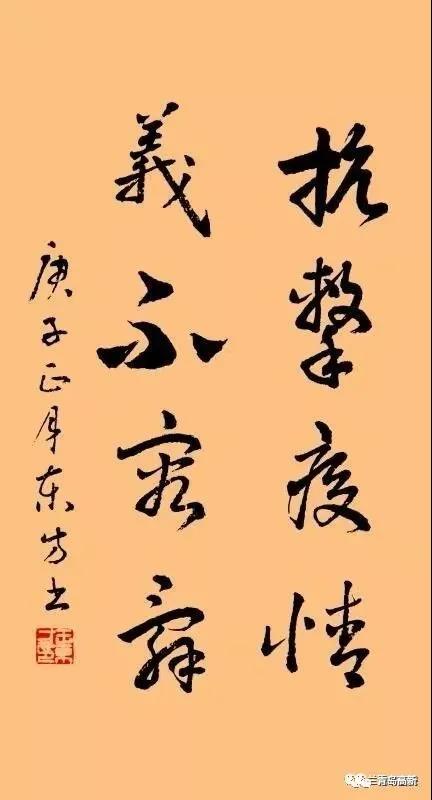 抗擊疫情
義不容辭
庚子正月東方书
兰青岛高新